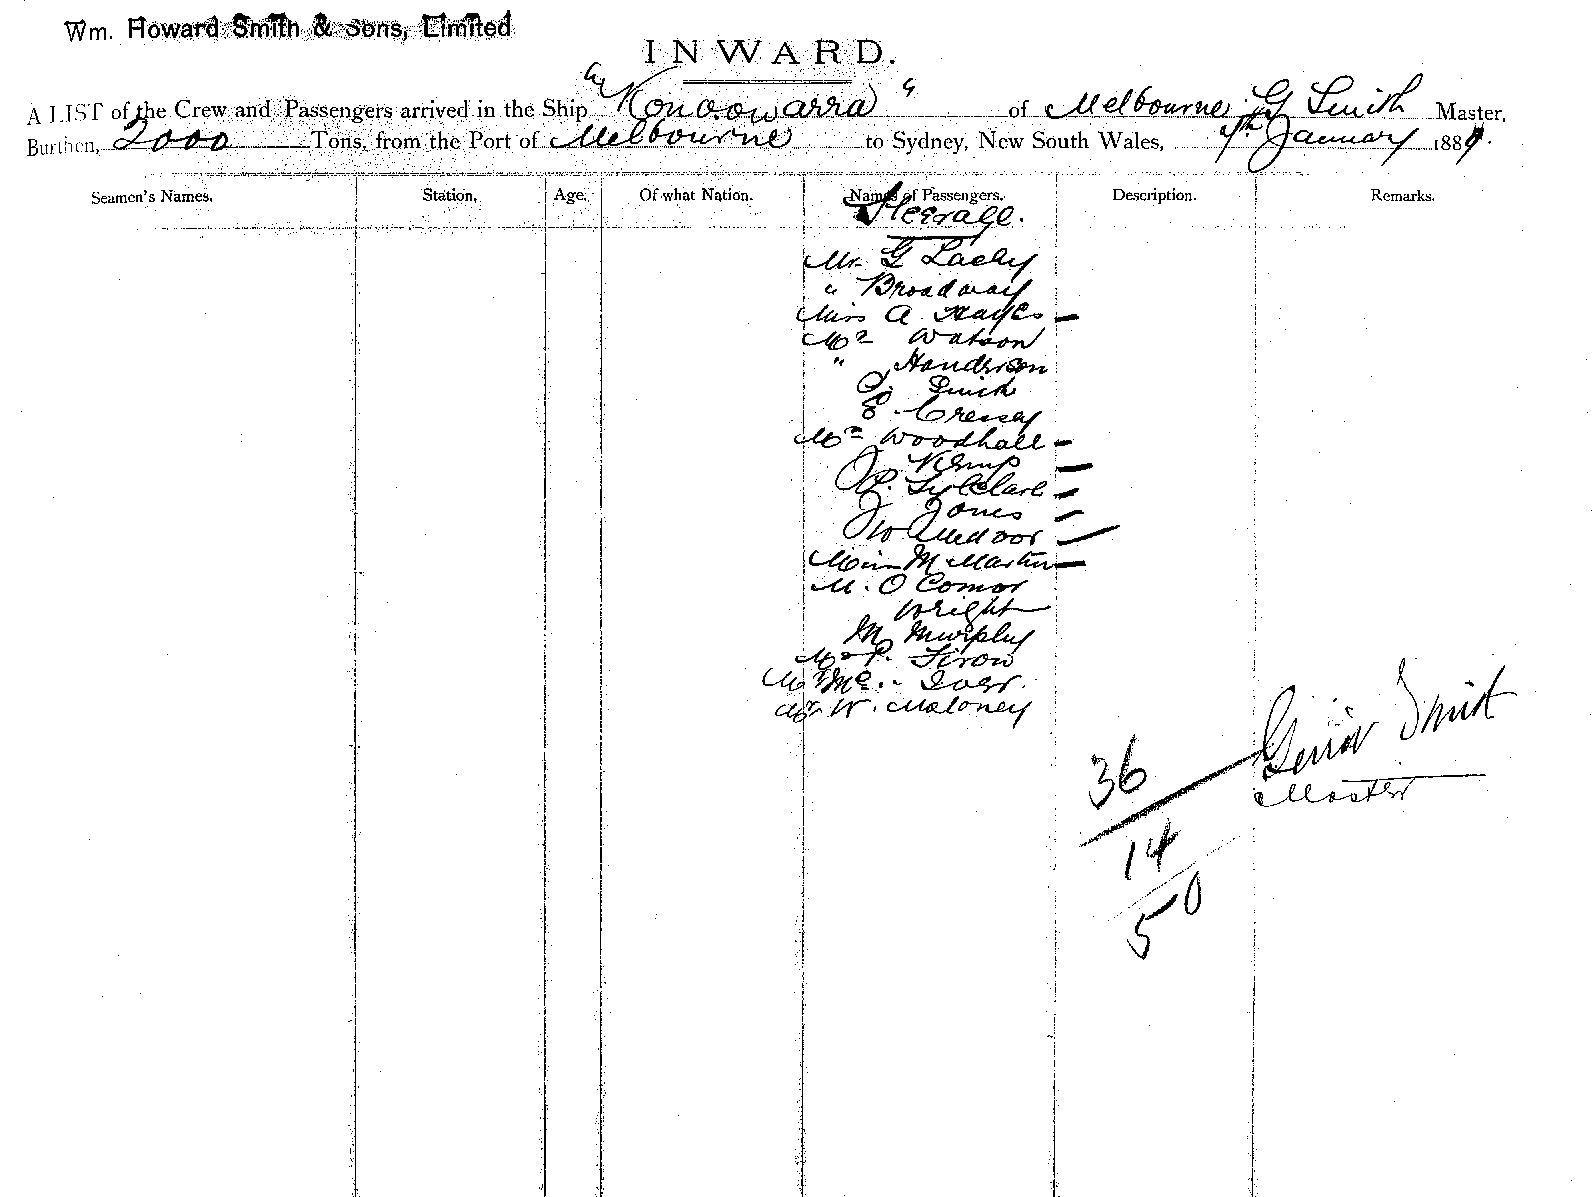 Wm. Howard Smith & Sons, Limited
INWARD.
A LIST of the Crew and Passengers arrived in the Ship "Konoowarra" of Melbourne, G Smith Master,
Burthen, 2000 Tons, from the Port of Melbourne to Sydney, New South Wales, 7th January 1889.
Seamen's Names. Station. Age. Of what Nation. Names of Passengers. Description. Remarks.
Steerage.
Mr. G Lacey
" Broadway
Miss A Hayes
Mr Watson
" Handrison
Smith
E. Cressey
Mr Woodhall
Kemp
Jones
W
Miss M Martin
M. O Connor
Wright
M Murphy
P.
Mr Mc
Mr W. Maloney
36
14
50
Smith
Master